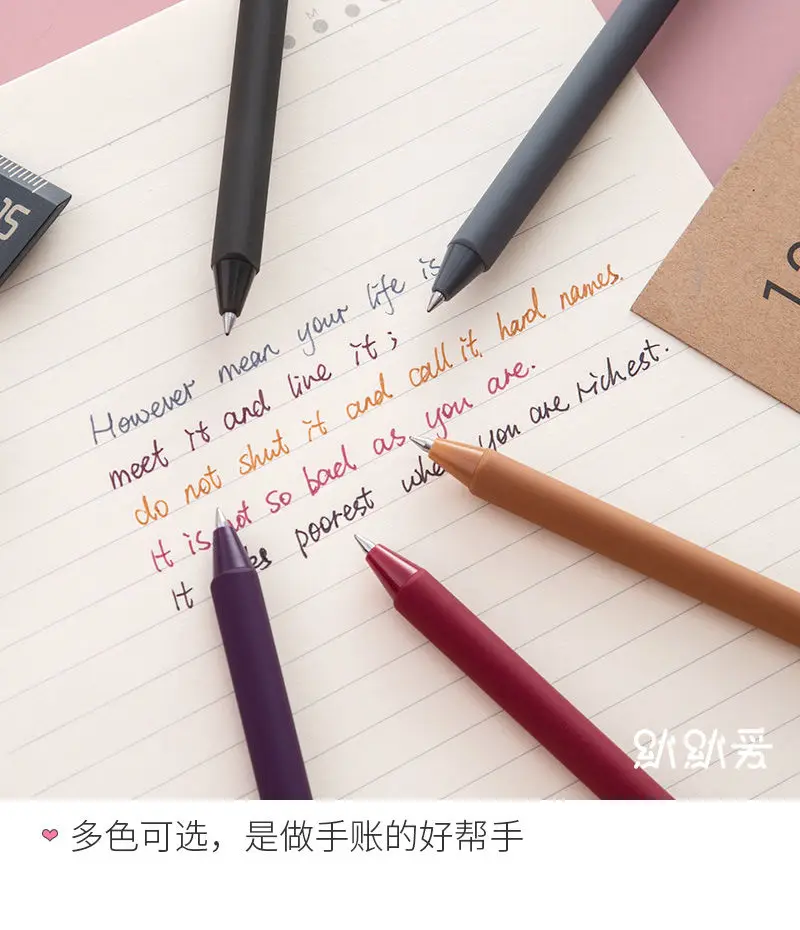 M
05
12
However mean your life is
meet it and live it;
do not shut it and call it hard names.
It is not so bad as you are.
It poorest when you are richest.
趴趴爱
多色可选，是做手账的好帮手